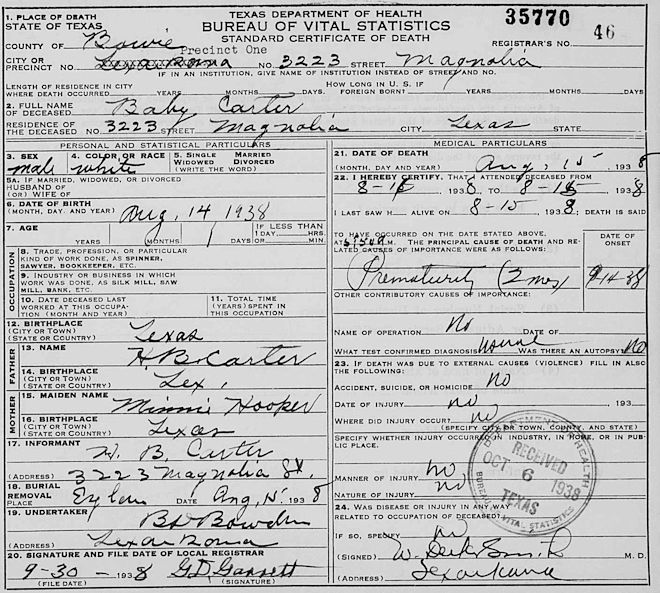 TEXAS DEPARTMENT OF HEALTH
BUREAU OF VITAL STATISTICS
STANDARD CERTIFICATE OF DEATH
35770
1. PLACE OF DEATH
STATE OF TEXAS
COUNTY OF Bowie
REGISTRAR'S NO. 46
Precinct One
CITY OR PRECINCT NO. NO 3223 STREET Magnolia
IF IN AN INSTITUTION, GIVE NAME OF INSTITUTION INSTEAD OF STREET AND NO.
LENGTH OF RESIDENCE IN CITY WHERE DEATH OCCURRED YEARS MONTHS DAYS. HOW LONG IN U. S. IF FOREIGN BORN? YEARS MONTHS DAYS
2. FULL NAME OF DECEASED Baby Carter
RESIDENCE OF THE DECEASED NO. 3223 STREET Magnolia CITY Texas STATE
PERSONAL AND STATISTICAL PARTICULARS
3. SEX male
4. COLOR OR RACE white
5. SINGLE MARRIED WIDOWED DIVORCED (WRITE THE WORD)
5A. IF MARRIED, WIDOWED, OR DIVORCED HUSBAND OF (OR) WIFE OF
6. DATE OF BIRTH (MONTH, DAY, AND YEAR) Aug, 14 1938
7. AGE YEARS MONTHS 1 DAYS IF LESS THAN 1 DAY, HRS. OR MIN.
OCCUPATION
8. TRADE, PROFESSION, OR PARTICULAR KIND OF WORK DONE, AS SPINNER, SAWYER, BOOKKEEPER, ETC.
9. INDUSTRY OR BUSINESS IN WHICH WORK WAS DONE, AS SILK MILL, SAW MILL, BANK, ETC.
10. DATE DECEASED LAST WORKED AT THIS OCCUPATION (MONTH AND YEAR)
11. TOTAL TIME (YEARS) SPENT IN THIS OCCUPATION
12. BIRTHPLACE (CITY OR TOWN) (STATE OR COUNTRY) Texas
FATHER
13. NAME H. B. Carter
14. BIRTHPLACE (CITY OR TOWN) (STATE OR COUNTRY) Tex,
MOTHER
15. MAIDEN NAME Minnie Hooper
16. BIRTHPLACE (CITY OR TOWN) (STATE OR COUNTRY) Texas
17. INFORMANT H. B. Carter
(ADDRESS) 3223 Magnolia St.
18. BURIAL REMOVAL PLACE DATE Aug, 1938
19. UNDERTAKER Bowden
(ADDRESS) Texarkana
20. SIGNATURE AND FILE DATE OF LOCAL REGISTRAR
9-30-1938 GD Garrett
(FILE DATE) (SIGNATURE)
MEDICAL PARTICULARS
21. DATE OF DEATH (MONTH, DAY AND YEAR) Aug, 15 1938
22. I HEREBY CERTIFY, THAT I ATTENDED DECEASED FROM
8-15 1938, TO 8-15 1938
I LAST SAW H ALIVE ON 8-15 1938; DEATH IS SAID
TO HAVE OCCURRED ON THE DATE STATED ABOVE,
AT M. THE PRINCIPAL CAUSE OF DEATH AND RELATED CAUSES OF IMPORTANCE WERE AS FOLLOWS:
DATE OF ONSET
Prematurity (2 mos)
OTHER CONTRIBUTORY CAUSES OF IMPORTANCE:
NAME OF OPERATION No DATE OF
WHAT TEST CONFIRMED DIAGNOSIS? WAS THERE AN AUTOPSY? No
23. IF DEATH WAS DUE TO EXTERNAL CAUSES (VIOLENCE) FILL IN ALSO THE FOLLOWING:
ACCIDENT, SUICIDE, OR HOMICIDE No
DATE OF INJURY no 193
WHERE DID INJURY OCCUR? no
(SPECIFY CITY OR TOWN, COUNTY, AND STATE)
SPECIFY WHETHER INJURY OCCURRED IN INDUSTRY, IN HOME, OR IN PUBLIC PLACE.
MANNER OF INJURY no
NATURE OF INJURY no
24. WAS DISEASE OR INJURY IN ANY WAY RELATED TO OCCUPATION OF DECEASED?
IF SO, SPECIFY no
(SIGNED) M. D.
(ADDRESS) Texarkana
DEPARTMENT OF HEALTH
RECEIVED
OCT 6 1938
TEXAS
BUREAU VITAL STATISTICS